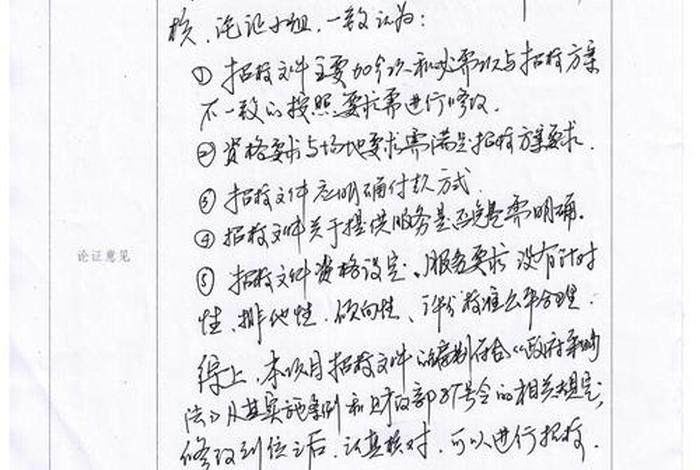 核、论证小组,一致认为:
①招标文件主要
不一致的按照要求需进行修改.
②资格要求与场地要求需满足招标方案要求.
③招标文件应明确付款方式.
④招标文件关于提供服务是否 需明确.
论证意见
⑤招标文件资格设定、服务要求没有针对
性、排他性、倾向性、评分标准公平合理.
综上,本项目招标文件的编制符合《政府采购
法》及其实施条例和财政部87号令的相关规定,
修改到位之后,认真核对,可以进行招标.